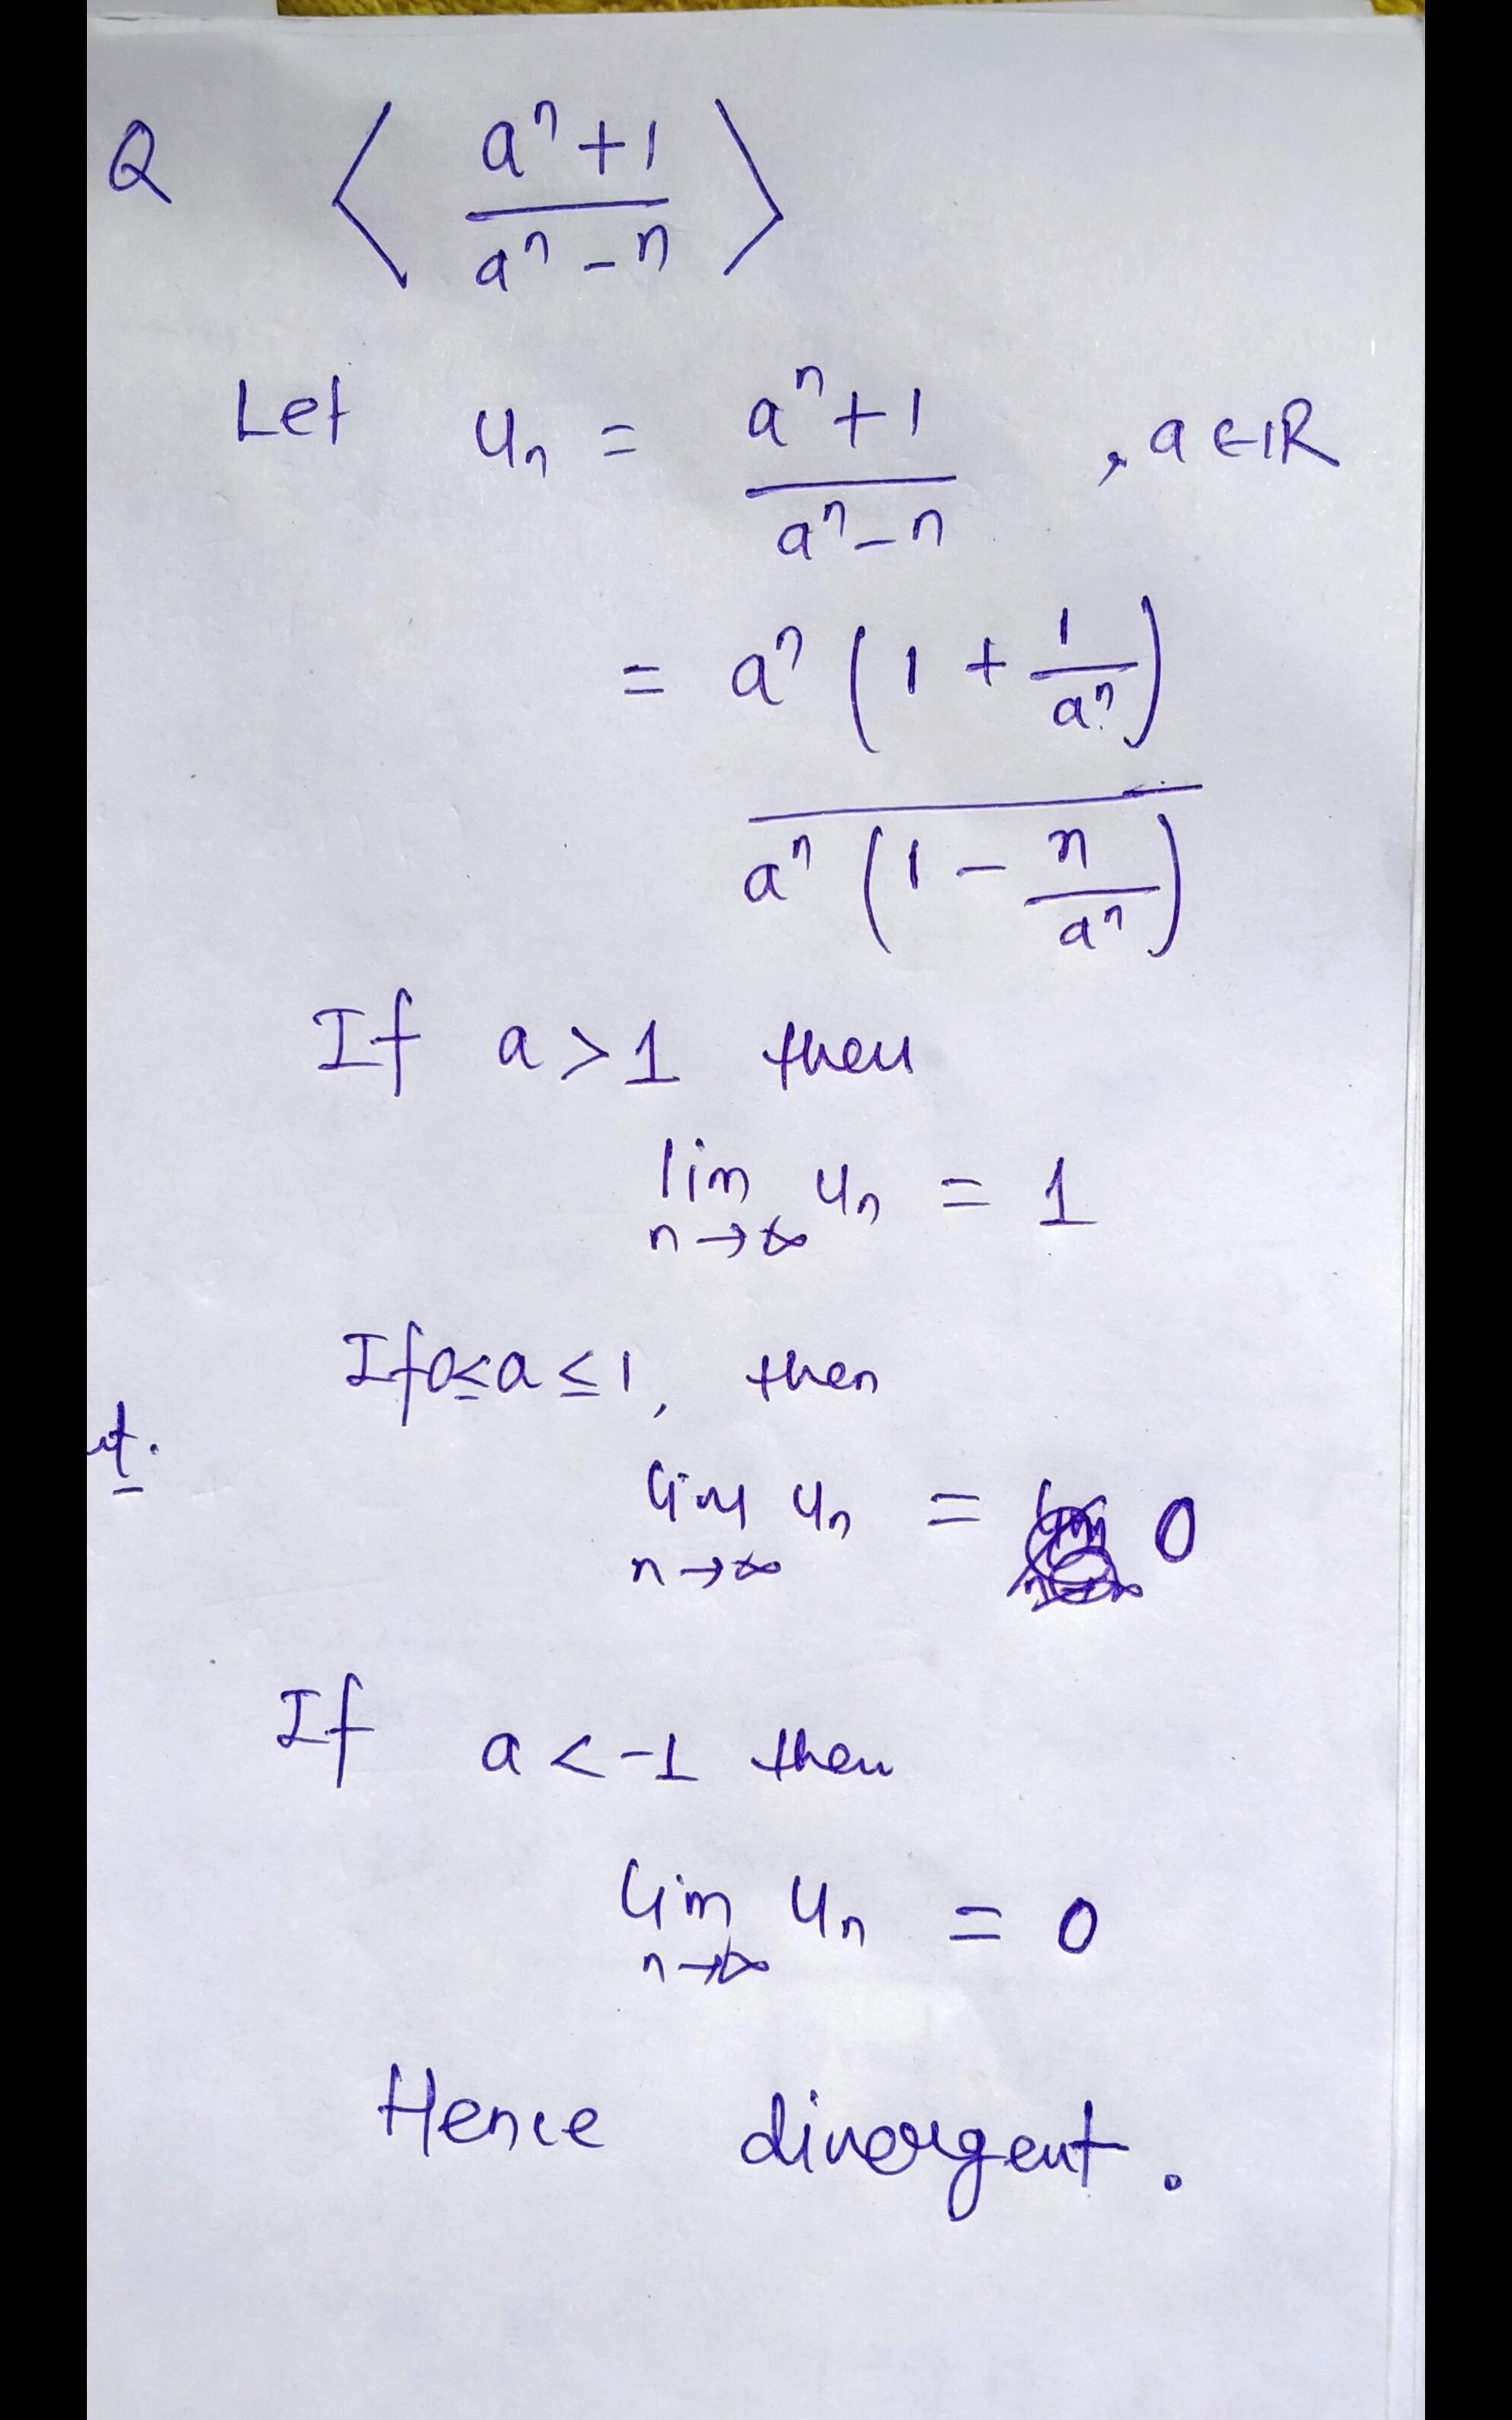 Q < aⁿ+1 / aⁿ-n >
Let uₙ = aⁿ+1 / aⁿ-n , a∈ℝ
= aⁿ (1 + 1/aⁿ)
aⁿ (1 - n/aⁿ)
If a > 1 then
lim uₙ = 1
n→∞
If 0≤a≤1, then
lim uₙ = 0
n→∞
If a < -1 then
lim uₙ = 0
n→∞
Hence divergent.